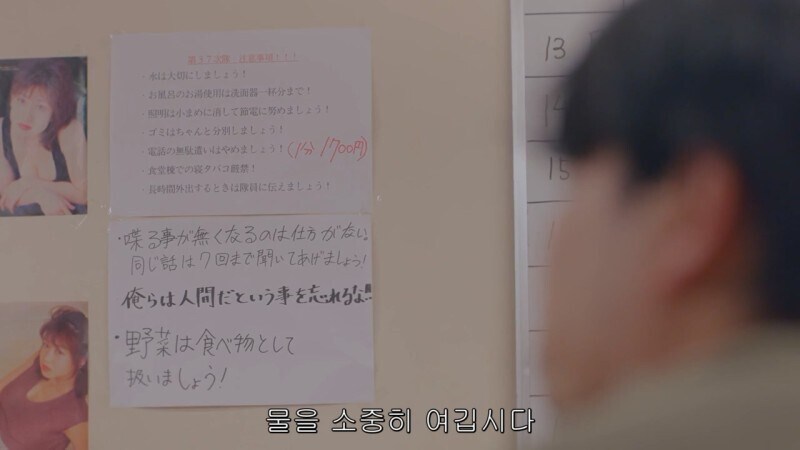 第37次隊・注意事項!!!
・水は大切にしましょう!
・お風呂のお湯使用は洗面器一杯分まで!
・照明は小まめに消して節電に努めましょう!
・ゴミはちゃんと分別しましょう!
・電話の無駄遣いはやめましょう! (1分 1700円)
・食堂棟での寝タバコ厳禁!
・長時間外出するときは隊員に伝えましょう!
・喋る事が無くなるのは仕方がない。
同じ話は7回まで聞いてあげましょう!
俺らは人間だという事を忘れるな!!!
・野菜は食べ物として
扱いましょう!
13
14
15
물을 소중히 여깁시다